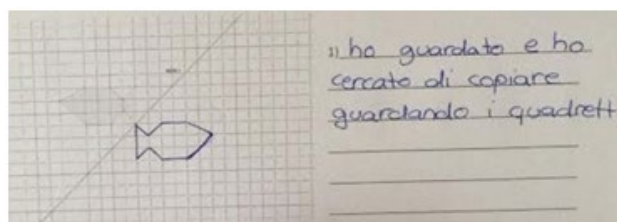 1) ho guardato e ho
cercato di copiare
guardando i quadrett